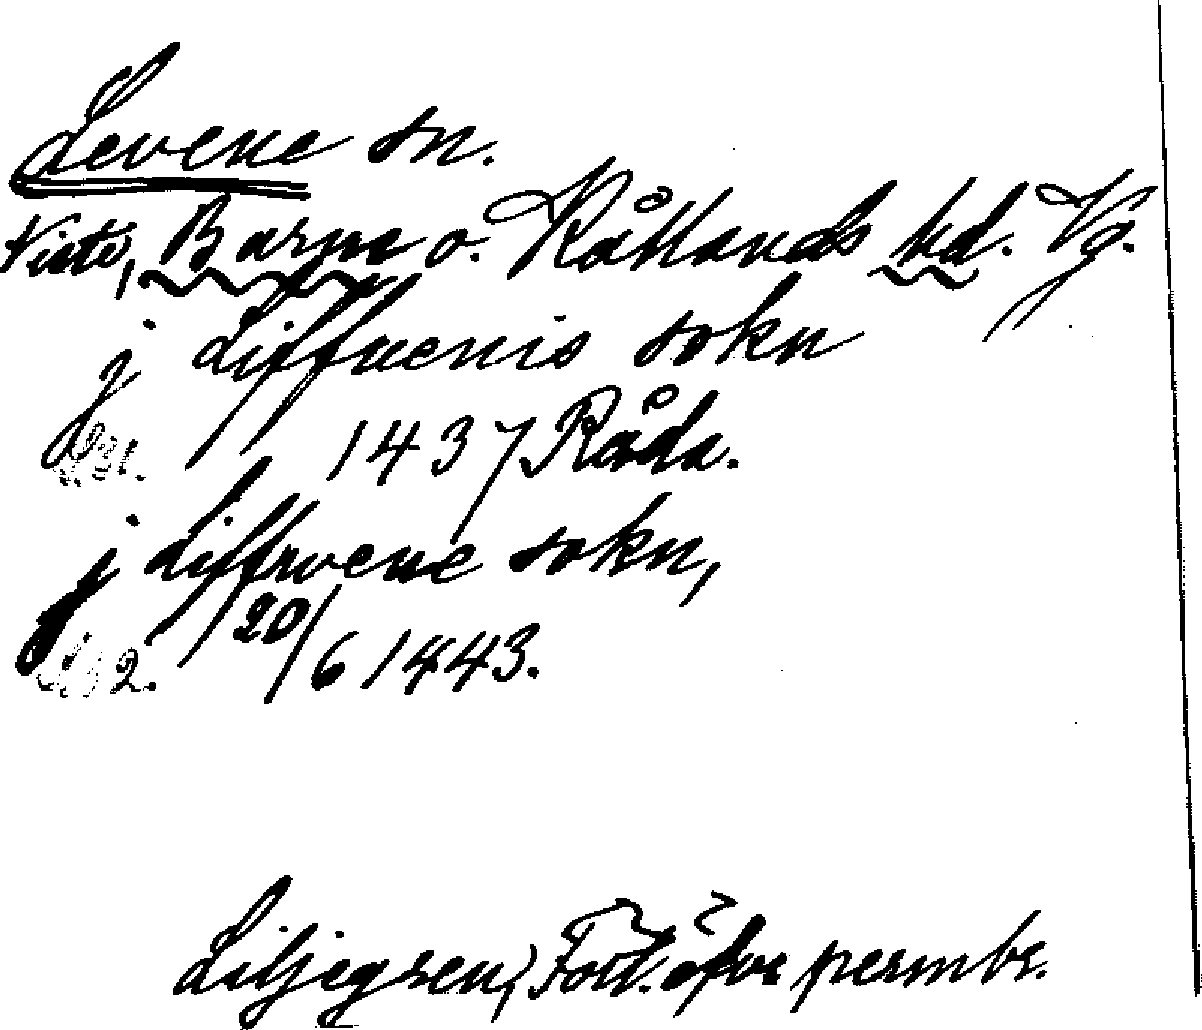 Levene sn.
Viste, Barne o. Kållands hd. Vg.
j Liffuenis sokn
1437 Råda.
j Liffwene sokn,
2. 20/6 1443.
Liljegren, Fört. öfver permbr.